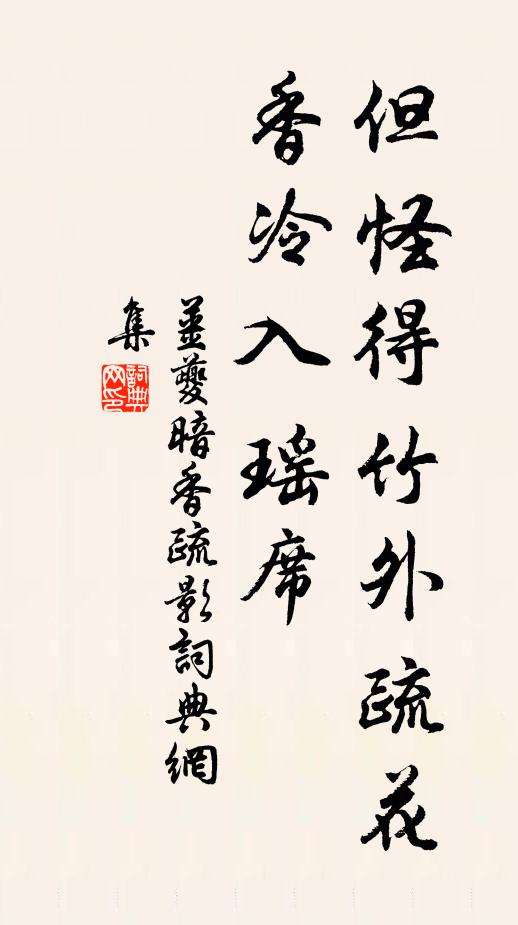 但怪得竹外疏花
香冷入瑶席
姜夔暗香疏影詞典網
集
詞典
网印